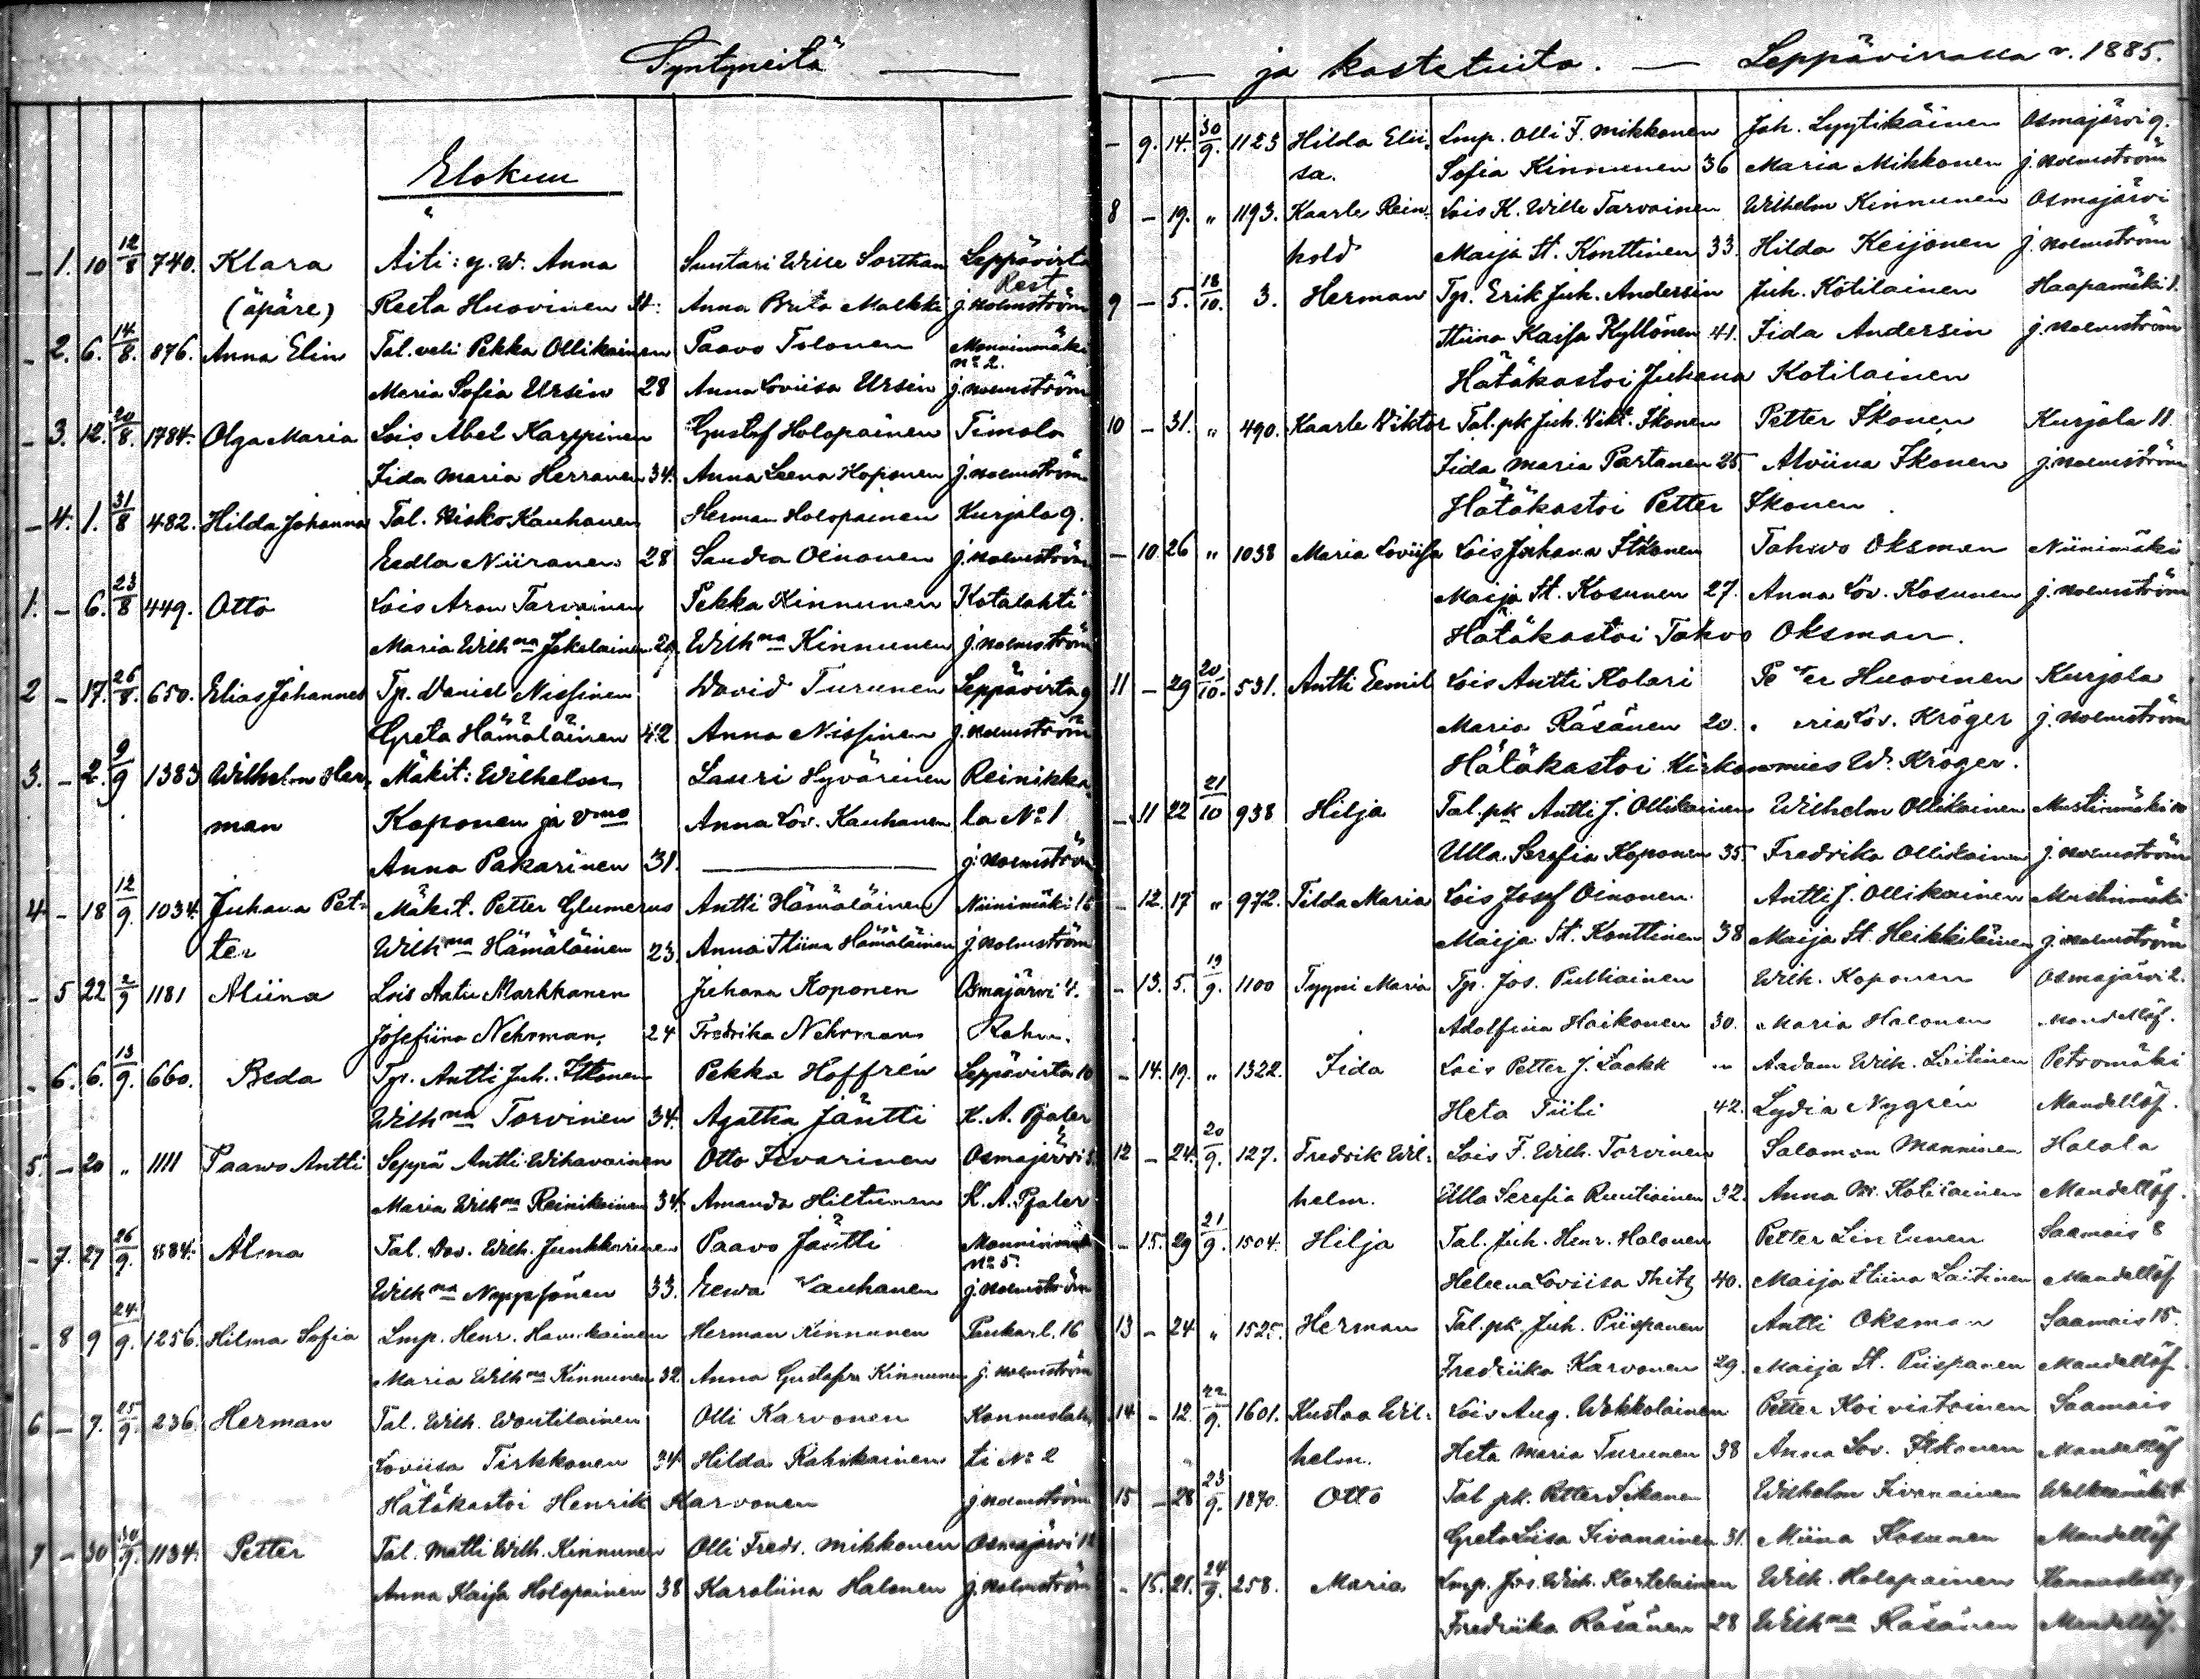 Syntyneitä —
Elokuu
– 1. 10 12/8 740. Klara Äiti: y. w. Anna Suutari Wille Sorthan Leppävirta
(äpäre) Reeta Huovinen Anna Brita Malkki Rest. j. Holmström
– 2. 6. 14/8. 876. Anna Elin Tal. veli Pekka Ollikainen Paavo Tolonen Manninmäki
No 2.
Maria Sofia Ursin 28 Anna Loviisa Ursin j. Holmström
– 3. 12. 20/8. 1784. Olga Maria Lois Abel Karppinen Gustaf Holopainen Timola
Iida Maria Herranen 34. Anna Leena Koponen j. Holmström
– 4. 1. 31/8 482. Hilda Johanna Tal. Risko Kauhanen Herman Holopainen Kurjala 9.
Eedla Niiranen 28 Sandra Oinonen j. Holmström
1. – 6. 23/8 449. Otto Lois Aron Tarvainen Pekka Kinnunen Kotalahti
Maria Wilhna Jokelainen 29. Wilhna Kinnunen j. Holmström
2 – 17. 26/8. 650. Elias Johannes Tp. Daniel Nissinen David Turunen Leppävirta 9
Greta Hämäläinen 42 Anna Nissinen j. Holmström
3. – 2. 9/9 1383 Wilhelm Her- Mäkit: Wilhelm Lauri Hyvärinen Reinikka-
man Koponen ja vmo Anna Lov. Kauhanen la No 1
Anna Pakarinen 31. — j. Holmström
4 – 18 12/9. 1034. Juhana Pet- Mäkit. Petter Glumerus Antti Hämäläinen Niinimäki
ter Wilhna Hämäläinen 23. Anna Stiina Hämäläinen j. Holmström
– 5 22 2/9 1181 Aliina Lois Aatu Markkanen Juhana Koponen Osmajärvi 4.
Josefiina Nehrman 24 Fredrika Nehrman Rahm.
– 6. 6. 13/9. 660. Beda Tp. Antti Juh. Itkonen Pekka Hoffrén Leppävirta 10
Wilhna Torvinen 34. Agatha Jäntti K. A. Pfaler
5. – 20 „ 1111 Paavo Antti Seppä Antti Wihavainen Otto Iivarinen Osmajärvi
Maria Wilhna Reinikainen 34. Amanda Hiltunen K. A. Pfaler
– 7. 27 26/9. 884. Alma Tal. Dav. Wilh. Junkkarinen Paavo Jäntti Manninmäki
No 5.
Wilhna Nyyssönen 33. Eeva Kauhanen j. Holmström
– 8 9 24/9. 1256. Hilma Sofia Lmp. Henr. Herman Kinnunen Paukarl. 16
Maria Wilhna Kinnunen 32. Anna Gustafva Kinnunen j. Holmström
6 – 7. 25/9. 236. Herman Tal. Wilh. Woutilainen Olli Karvonen Konnuslah-
Loviisa Tirkkonen 34 Hilda Rahikainen ti No 2
Hätäkastoi Henrik Karvonen j. Holmström
7 – 30 30/9. 1134. Petter Tal. Matti Wilh. Kinnunen Olli Fredr. Mikkonen Osmajärvi
Anna Kaisa Holopainen 38 Karoliina Halonen j. Holmström
— ja kastetuita. — Leppävirralla v. 1885.
– 9. 14. 30/9. 1123 Hilda Elii- Lmp. Olli F. Mikkonen Joh. Lyytikäinen Osmajärvi 9.
sa. Sofia Kinnunen 36 Maria Mikkonen j. Holmström
8 – 19. „ 1193. Kaarle Rein- Lois K. Wille Tarvainen Wilhelm Kinnunen Osmajärvi
hold Maija St. Konttinen 33. Hilda Keijonen j. Holmström
9 – 5. 18/10. 3. Herman Tp. Erik Juh. Andersin Juh. Kotilainen Haapamäki 1.
Stiina Kaisa Kyllönen 41. Iida Andersin j. Holmström
Hätäkastoi Juhana Kotilainen
10 – 31. „ 490. Kaarle Wiktor Tal. pk Juh. Vikt. Ikonen Petter Ikonen Kurjala 11
Iida Maria Partanen 25. Alviina Ikonen j. Holmström
Hätäkastoi Petter Ikonen
– 10. 26 „ 1038 Maria Loviisa Lois Juhana Itkonen Tahvo Oksman Niinimäki
Maija St. Kosunen 27. Anna Lov. Kosunen j. Holmström
Hätäkastoi Tahvo Oksman.
11 – 29 20/10. 531. Antti Eemil Lois Antti Kolari Huovinen Kurjala
Maria Räsänen 20. Lov. Kröger j. Holmström
Hätäkastoi Kirkonmies W. Kröger.
– 11 22 21/10 938 Hilja Tal. pk Antti J. Ollikainen Wilhelm Ollikainen Mustinmäki 10
Ulla Serafia Koponen 35. Fredrika Ollikainen j. Holmström
– 12. 17 „ 972. Tilda Maria Lois Josef Oinonen Antti J. Ollikainen Mustinmäki
Maija St. Konttinen 38 Maija St. Heikkiläinen j. Holmström
– 13. 5. 19/9. 1100 Tyyni Maria Tp. Jos. Pulliainen Wilh. Koponen Osmajärvi 2.
Adolfina Haikonen 30. Maria Halonen Mandellöf.
– 14. 19. „ 1322. Iida Lois Petter J. Laakk Aadam Wilh. Laitinen Petromäki
Heta Tiili 42. Lydia Nygrén Mandellöf.
12 – 24. 20/9. 127. Fredrik Wil- Lois F. Wilh. Torvinen Salomon Manninen Halola
helm. Ulla Serafia Ruutiainen 32. Anna M. Kotilainen Mandellöf.
– 15. 29 21/9. 1504. Hilja Tal. Juh. Henr. Halonen Petter Saamais 8
Heleena Loviisa Thitz 40. Maija Stiina Laitinen Mandellöf
13 – 24 „ 1525. Herman Tal. pk. Juh. Piispanen Antti Oksman Saamais 15.
Fredriika Karvonen 29. Maija St. Piispanen Mandellöf.
14 – 12. 22/9. 1601. Kustaa Wil- Lois Aug. Wokkolainen Petter Koivistoinen Saamais
helm. Heta Maria Turunen 38 Anna Lov. Itkonen Mandellöf
15 – 28 23/9. 1870. Otto Tal pk. Petter Sikanen Wilhelm Iivanainen
Greta Liisa Iivanainen 31. Miina Kosunen Mandellöf
– 15. 21. 24/9. 258. Maria Lmp. Jos. Wilh. Kortelainen Wilh. Holopainen
Fredriika Räsänen 28 Wilhna Räsänen Mandellöf.